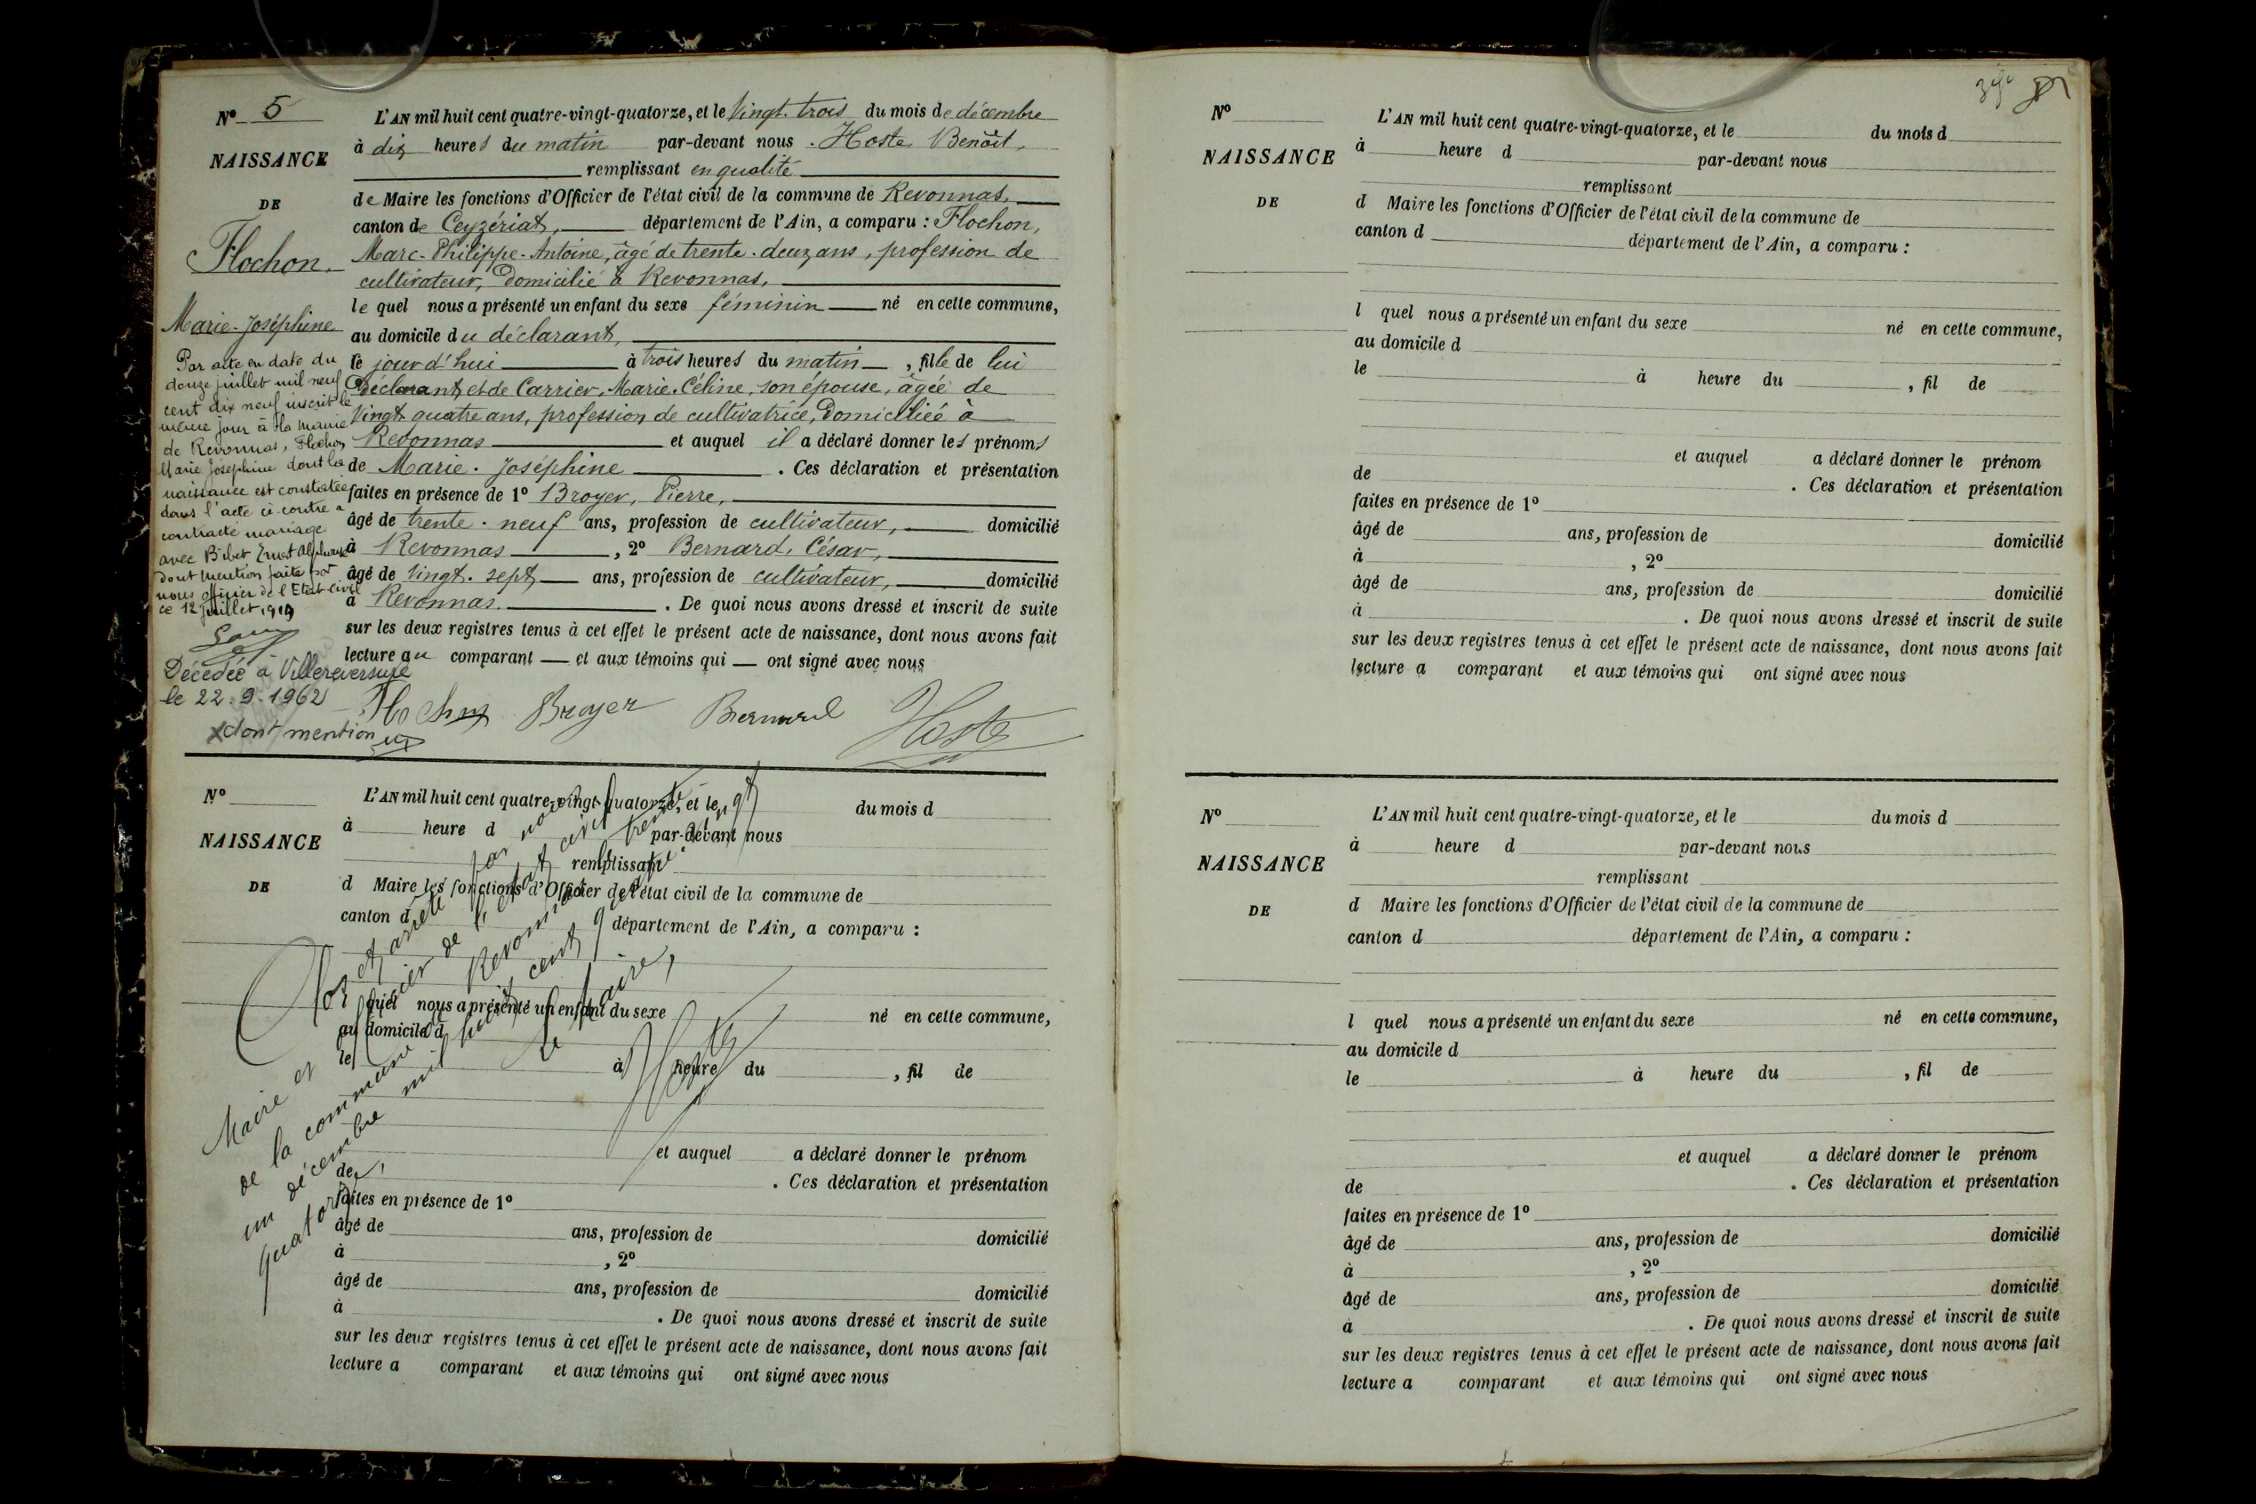 N° 5
NAISSANCE
DE
Flochon.
Marie-Joséphine
Par acte en date du
douze juillet mil neuf
cent dix neuf inscrit le
même jour à la mairie
de Revonnas, Flochon
Marie Joséphine dont la
naissance est constatée
dans l'acte ci-contre a
contracté mariage
avec Bibet Ernest Alphonse
dont mention faite par
nous officier de l'Etat-civil
ce 12 juillet 1919
Décédée à Villereversure
le 22.9.1962
dont mention
L'AN mil huit cent quatre-vingt-quatorze, et le Vingt-trois du mois de décembre
à dix heures du matin par-devant nous . Hoste Benoît,
remplissant en qualité
de Maire les fonctions d'Officier de l'état civil de la commune de Revonnas,
canton de Ceyzériat, département de l'Ain, a comparu : Flochon,
Marc-Philippe-Antoine, âgé de trente-deux ans, profession de
cultivateur, domicilié à Revonnas,
le quel nous a présenté un enfant du sexe féminin né en cette commune,
au domicile du déclarant,
le jour d'hui à trois heures du matin , fille de lui
déclarant, et de Carrier, Marie-Céline, son épouse, âgée de
vingt quatre ans, profession de cultivatrice, domiciliée à
Revonnas et auquel il a déclaré donner les prénoms
de Marie-Joséphine . Ces déclaration et présentation
faites en présence de 1° Broyer, Pierre,
âgé de trente-neuf ans, profession de cultivateur, domicilié
à Revonnas , 2° Bernard, César,
âgé de vingt-sept ans, profession de cultivateur, domicilié
à Revonnas. . De quoi nous avons dressé et inscrit de suite
sur les deux registres tenus à cet effet le présent acte de naissance, dont nous avons fait
lecture au comparant et aux témoins qui ont signé avec nous
Flochon Broyer Bernard Hoste
N°
NAISSANCE
DE
L'AN mil huit cent quatre-vingt-quatorze, et le du mois d
à heure d par-devant nous
remplissant
d Maire les fonctions d'Officier de l'état civil de la commune de
canton d département de l'Ain, a comparu :
l quel nous a présenté un enfant du sexe né en cette commune,
au domicile d
le à heure du , fil de
et auquel a déclaré donner le prénom
de . Ces déclaration et présentation
faites en présence de 1°
âgé de ans, profession de domicilié
à , 2°
âgé de ans, profession de domicilié
à . De quoi nous avons dressé et inscrit de suite
sur les deux registres tenus à cet effet le présent acte de naissance, dont nous avons fait
lecture a comparant et aux témoins qui ont signé avec nous
Clos et arrêté par nous
Maire et officier de l'état civil
de la commune de Revonnas le trente
un décembre mil huit cent quatre-vingt
quatorze,
Le Maire,
Hoste
N°
NAISSANCE
DE
L'AN mil huit cent quatre-vingt-quatorze, et le du mois d
à heure d par-devant nous
remplissant
d Maire les fonctions d'Officier de l'état civil de la commune de
canton d département de l'Ain, a comparu :
l quel nous a présenté un enfant du sexe né en cette commune,
au domicile d
le à heure du , fil de
et auquel a déclaré donner le prénom
de . Ces déclaration et présentation
faites en présence de 1°
âgé de ans, profession de domicilié
à , 2°
âgé de ans, profession de domicilié
à . De quoi nous avons dressé et inscrit de suite
sur les deux registres tenus à cet effet le présent acte de naissance, dont nous avons fait
lecture a comparant et aux témoins qui ont signé avec nous
N°
NAISSANCE
DE
L'AN mil huit cent quatre-vingt-quatorze, et le du mois d
à heure d par-devant nous
remplissant
d Maire les fonctions d'Officier de l'état civil de la commune de
canton d département de l'Ain, a comparu :
l quel nous a présenté un enfant du sexe né en cette commune,
au domicile d
le à heure du , fil de
et auquel a déclaré donner le prénom
de . Ces déclaration et présentation
faites en présence de 1°
âgé de ans, profession de domicilié
à , 2°
âgé de ans, profession de domicilié
à . De quoi nous avons dressé et inscrit de suite
sur les deux registres tenus à cet effet le présent acte de naissance, dont nous avons fait
lecture a comparant et aux témoins qui ont signé avec nous